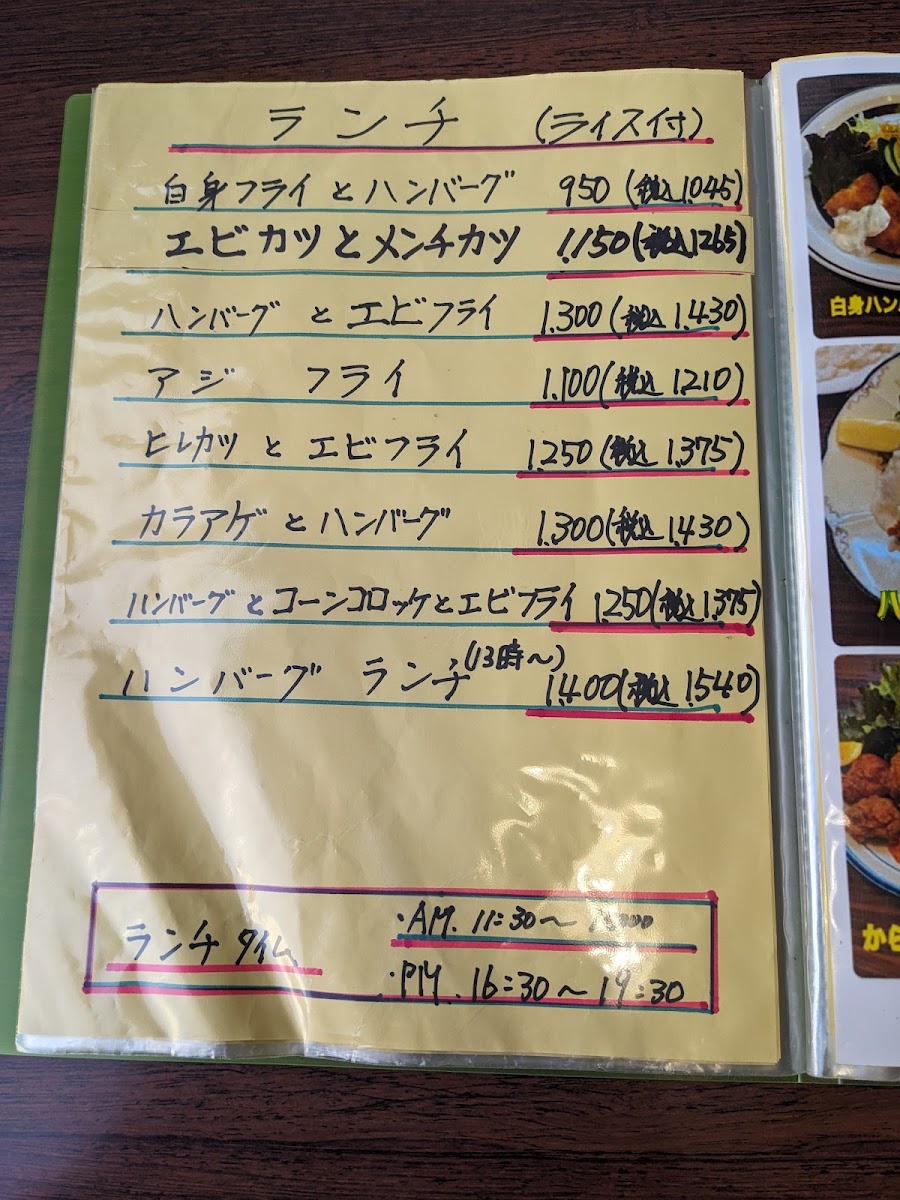 ランチ (ライス付)
白身フライとハンバーグ 950 (税込1.045)
エビカツとメンチカツ 1.150 (税込1265)
ハンバーグとエビフライ 1.300 (税込1.430)
アジフライ 1.100 (税込1210)
ヒレカツとエビフライ 1.250 (税込1.375)
カラアゲとハンバーグ 1.300 (税込1.430)
ハンバーグとコーンコロッケとエビフライ 1.250 (税込1.375)
ハンバーグ ランチ (13時〜) 1.400 (税込1.540)
ランチタイム
・AM. 11:30〜
・PM. 16:30〜19:30
白身ハン
ハ
から